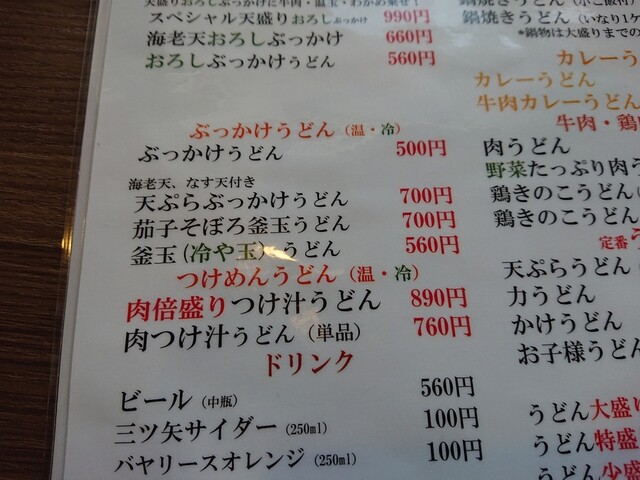 天盛りおろしぶっかけに牛肉・温玉・わかめ乗せ！
スペシャル天盛りおろしぶっかけ 990円
海老天おろしぶっかけ 660円
おろしぶっかけうどん 560円
ぶっかけうどん（温・冷）
ぶっかけうどん 500円
海老天、なす天付き
天ぷらぶっかけうどん 700円
茄子そぼろ釜玉うどん 700円
釜玉(冷や玉)うどん 560円
つけめんうどん（温・冷）
肉倍盛りつけ汁うどん 890円
肉つけ汁うどん（単品） 760円
ドリンク
ビール（中瓶） 560円
三ツ矢サイダー（250ml） 100円
バヤリースオレンジ（250ml） 100円
鍋焼きうどん
鍋焼きうどん（いなり1ケ
*鍋物は大盛りまでの
カレーう
カレーうどん
牛肉カレーうどん
牛肉・鶏
肉うどん
野菜たっぷり肉う
鶏きのこうどん
鶏きのこうどん
定番
天ぷらうどん
力うどん
かけうどん
お子様うどん
うどん大盛り
うどん特盛
うどん少盛